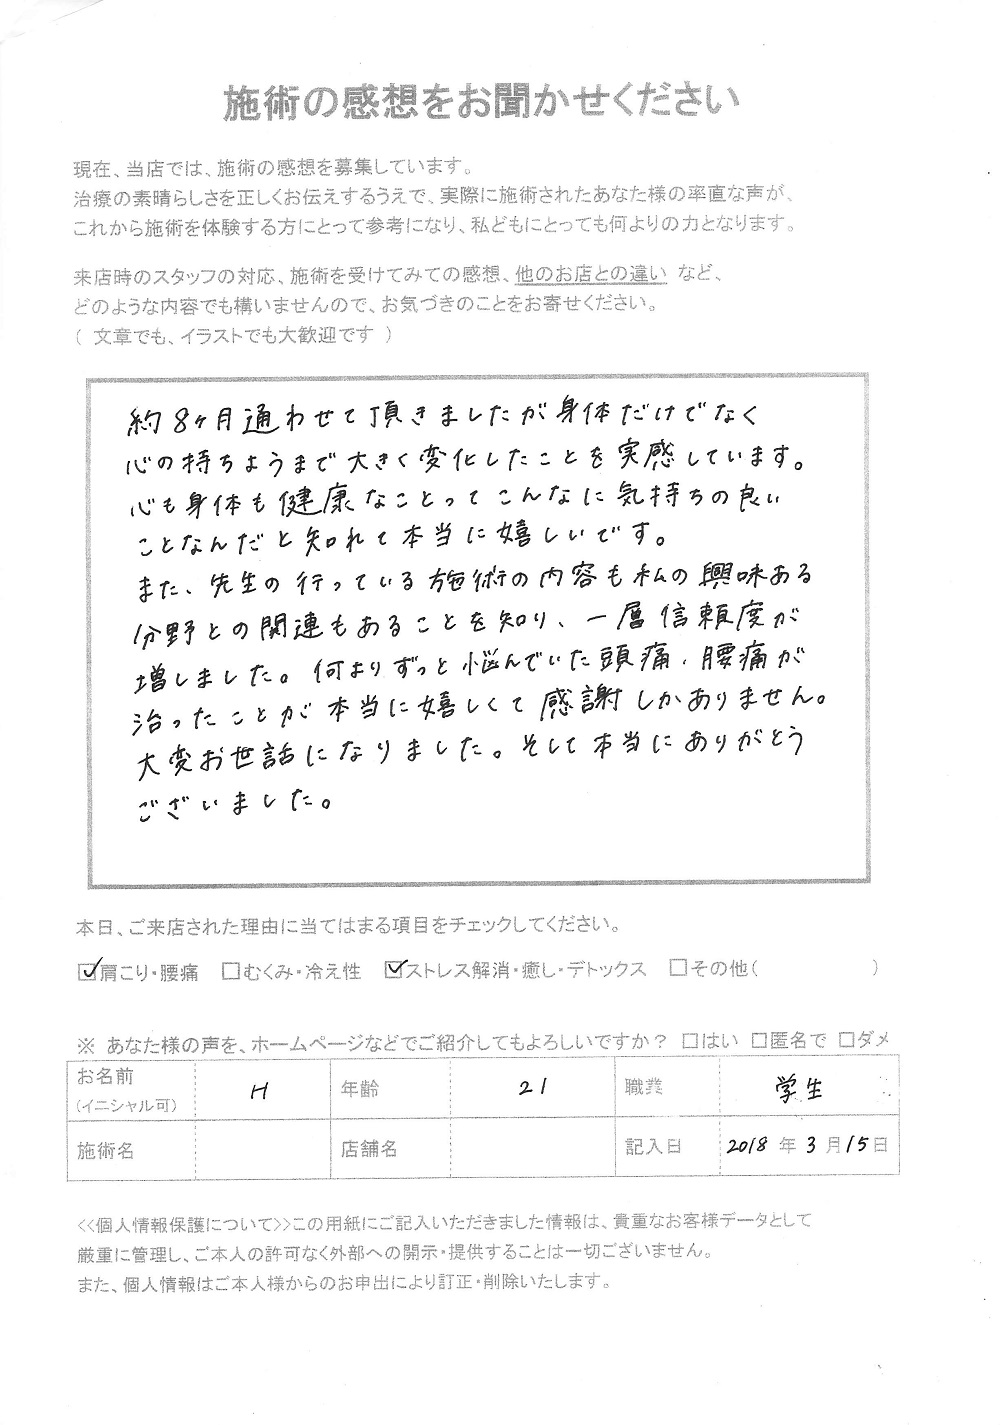 施術の感想をお聞かせください
現在、当店では、施術の感想を募集しています。
治療の素晴らしさを正しくお伝えするうえで、実際に施術されたあなた様の率直な声が、
これから施術を体験する方にとって参考になり、私どもにとっても何よりの力となります。
来店時のスタッフの対応、施術を受けてみての感想、他のお店との違い など、
どのような内容でも構いませんので、お気づきのことをお寄せください。
( 文章でも、イラストでも大歓迎です )
約8ヶ月通わせて頂きましたが身体だけでなく
心の持ちようまで大きく変化したことを実感しています。
心も身体も健康なことってこんなに気持ちの良い
ことなんだと知れて本当に嬉しいです。
また、先生の行っている施術の内容も私の興味ある
分野との関連もあることを知り、一層信頼度が
増しました。何よりずっと悩んでいた頭痛、腰痛が
治ったことが本当に嬉しくて感謝しかありません。
大変お世話になりました。そして本当にありがとう
ございました。
本日、ご来店された理由に当てはまる項目をチェックしてください。
☑肩こり・腰痛 □むくみ・冷え性 ☑ストレス解消・癒し・デトックス □その他( )
※ あなた様の声を、ホームページなどでご紹介してもよろしいですか? □はい □匿名で □ダメ
お名前 H 年齢 21 職業 学生
(イニシャル可)
施術名 店舗名 記入日 2018 年 3 月 15 日
<<個人情報保護について>>この用紙にご記入いただきました情報は、貴重なお客様データとして
厳重に管理し、ご本人の許可なく外部への開示・提供することは一切ございません。
また、個人情報はご本人様からのお申出により訂正・削除いたします。